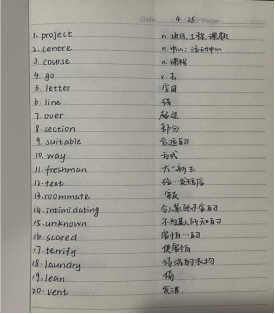 Date 4.25 Page
1. project n. 项目、工程、课题
2. centre n. 中心；活动中心
3. course n. 课程
4. go v. 去
5. letter 字母
6. line 线
7. over 越过
8. section 部分
9. suitable 合适的
10. way 方式
11. freshman 大一新生
12. text 给…发短信
13. roommate 室友
14. intimidating 令人紧张不安的
15. unknown 不为人所知的
16. scared 害怕…的
17. terrify 使害怕
18. laundry 待洗的衣物
19. lean 倚
20. vent 发泄